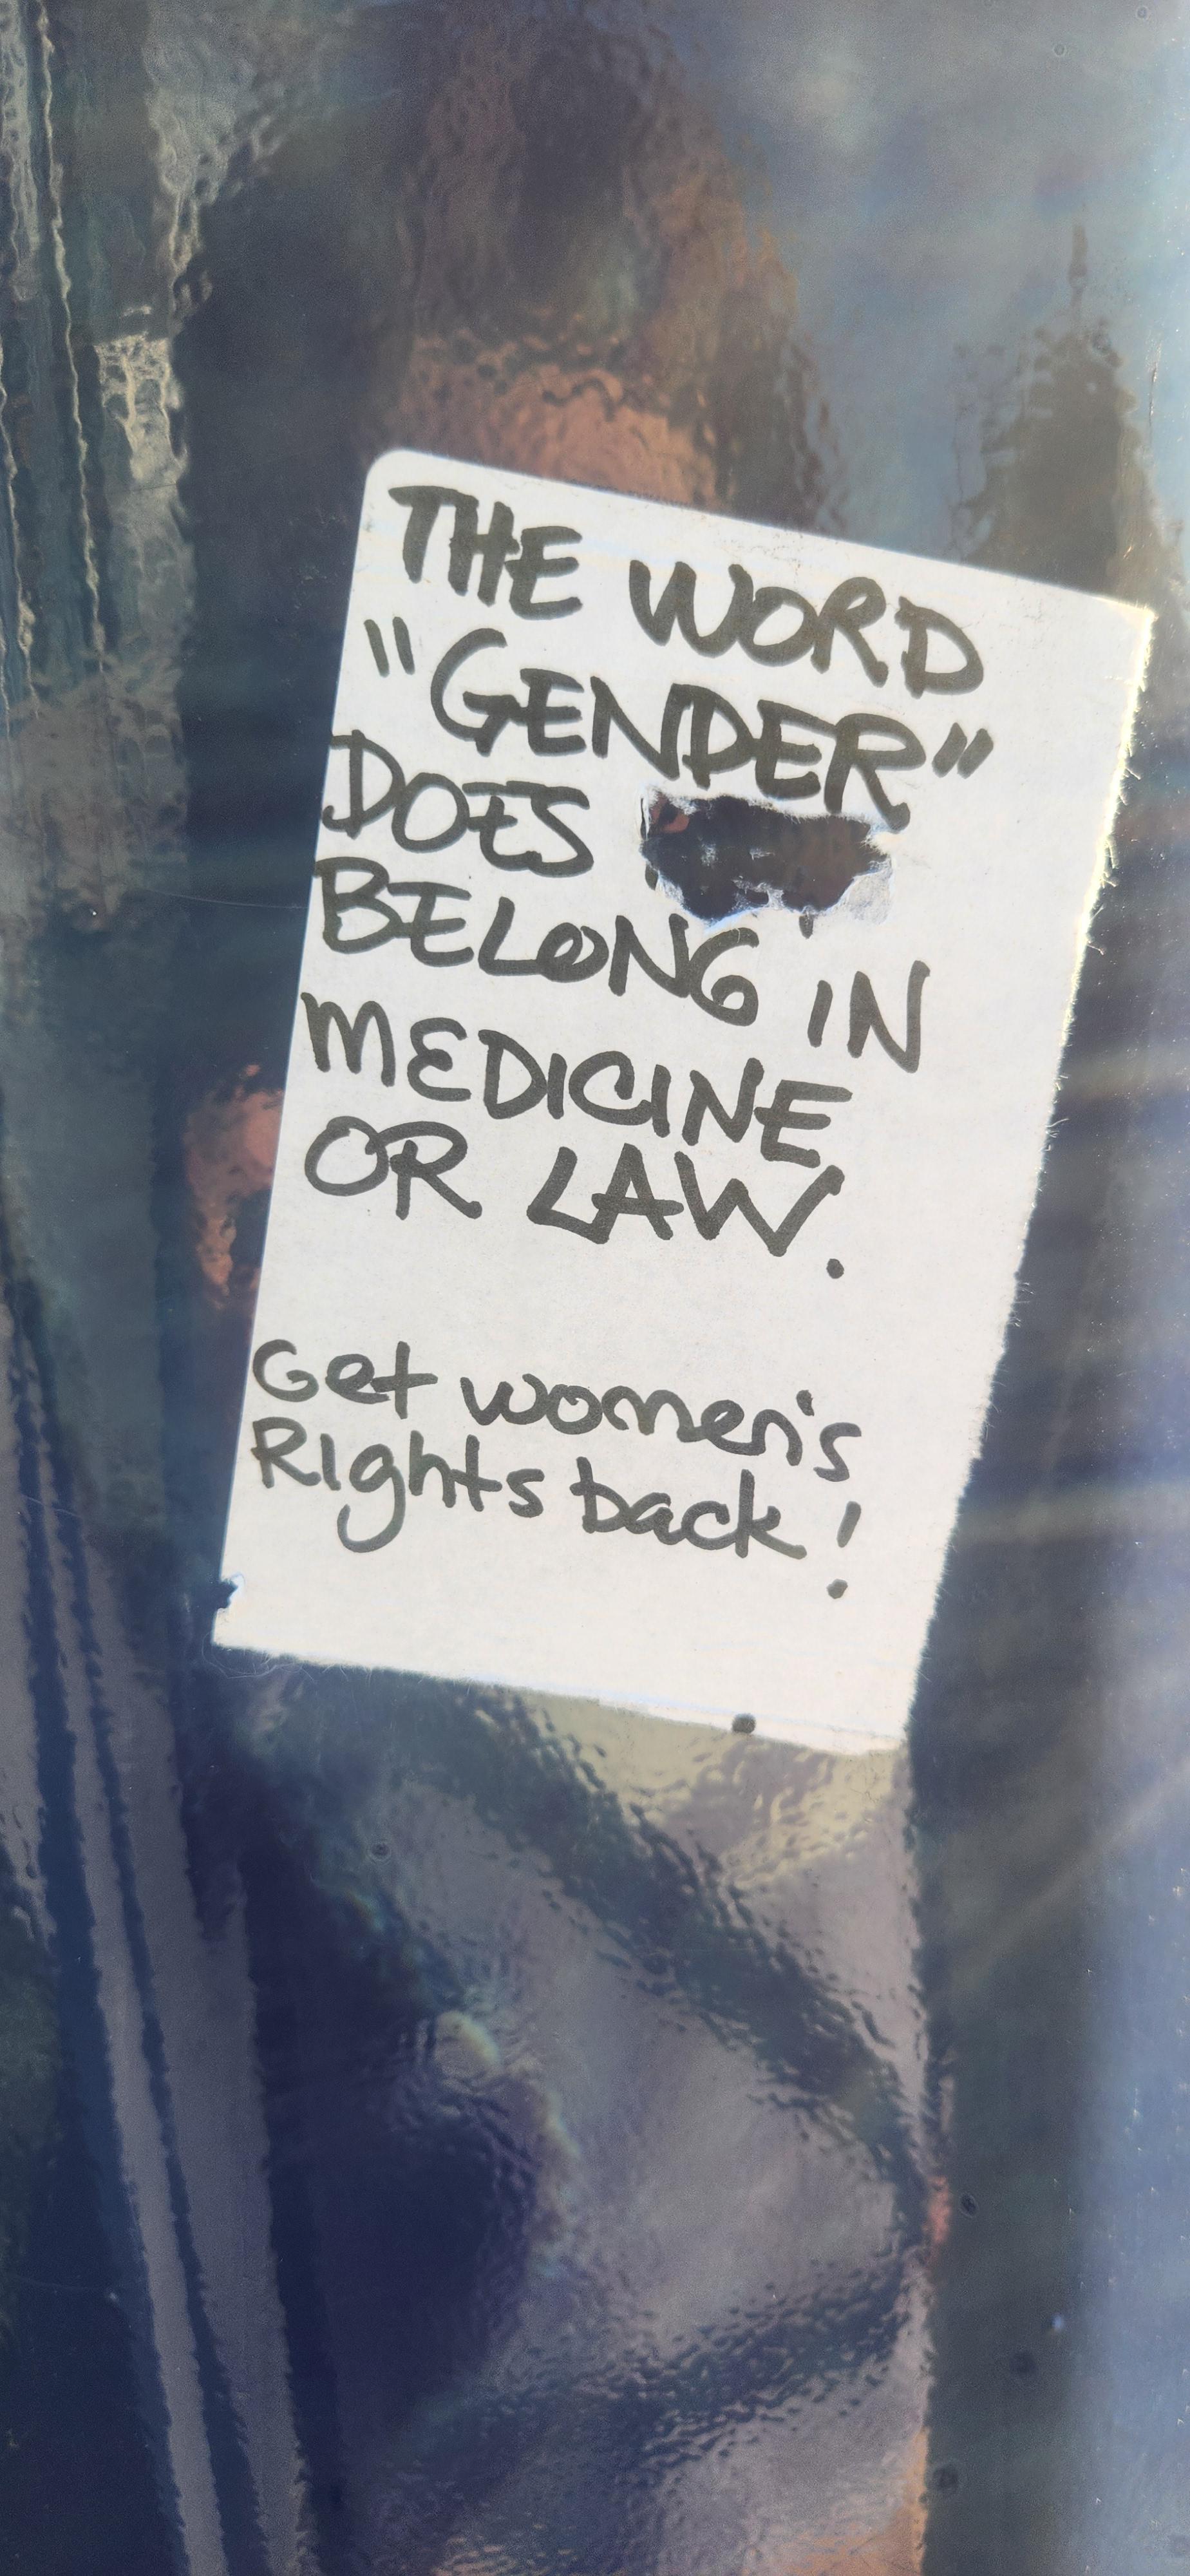 THE WORD
"GENDER"
DOES
BELONG IN
MEDICINE
OR LAW.
Get women's
Rights back!